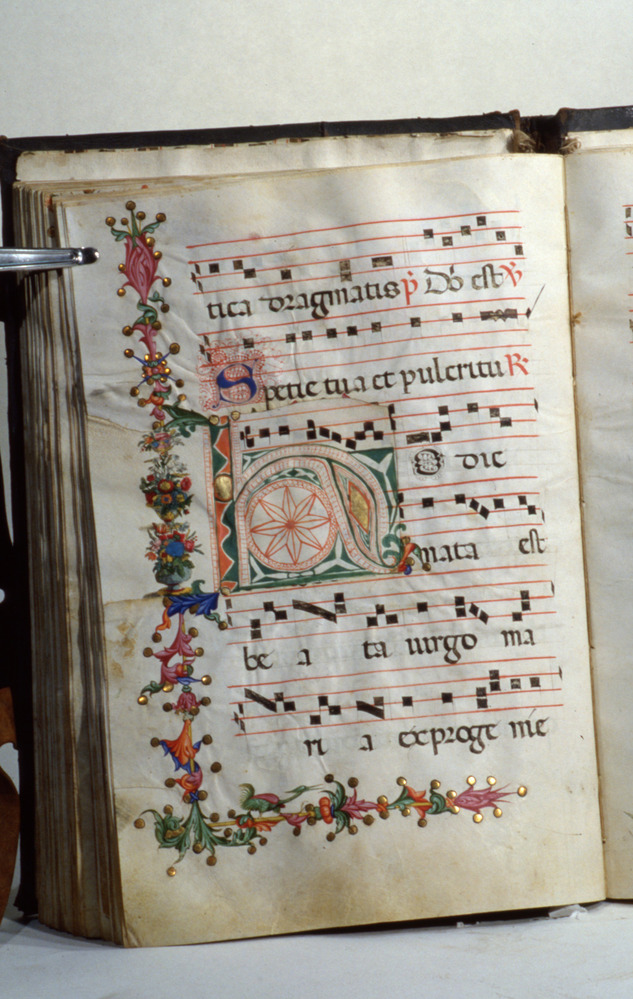 tica dragmatis p̄ Dō est ℣
Specie tua et pulcritu R
Hodie
nata est
be a ta uirgo ma
ri a ex proge nie